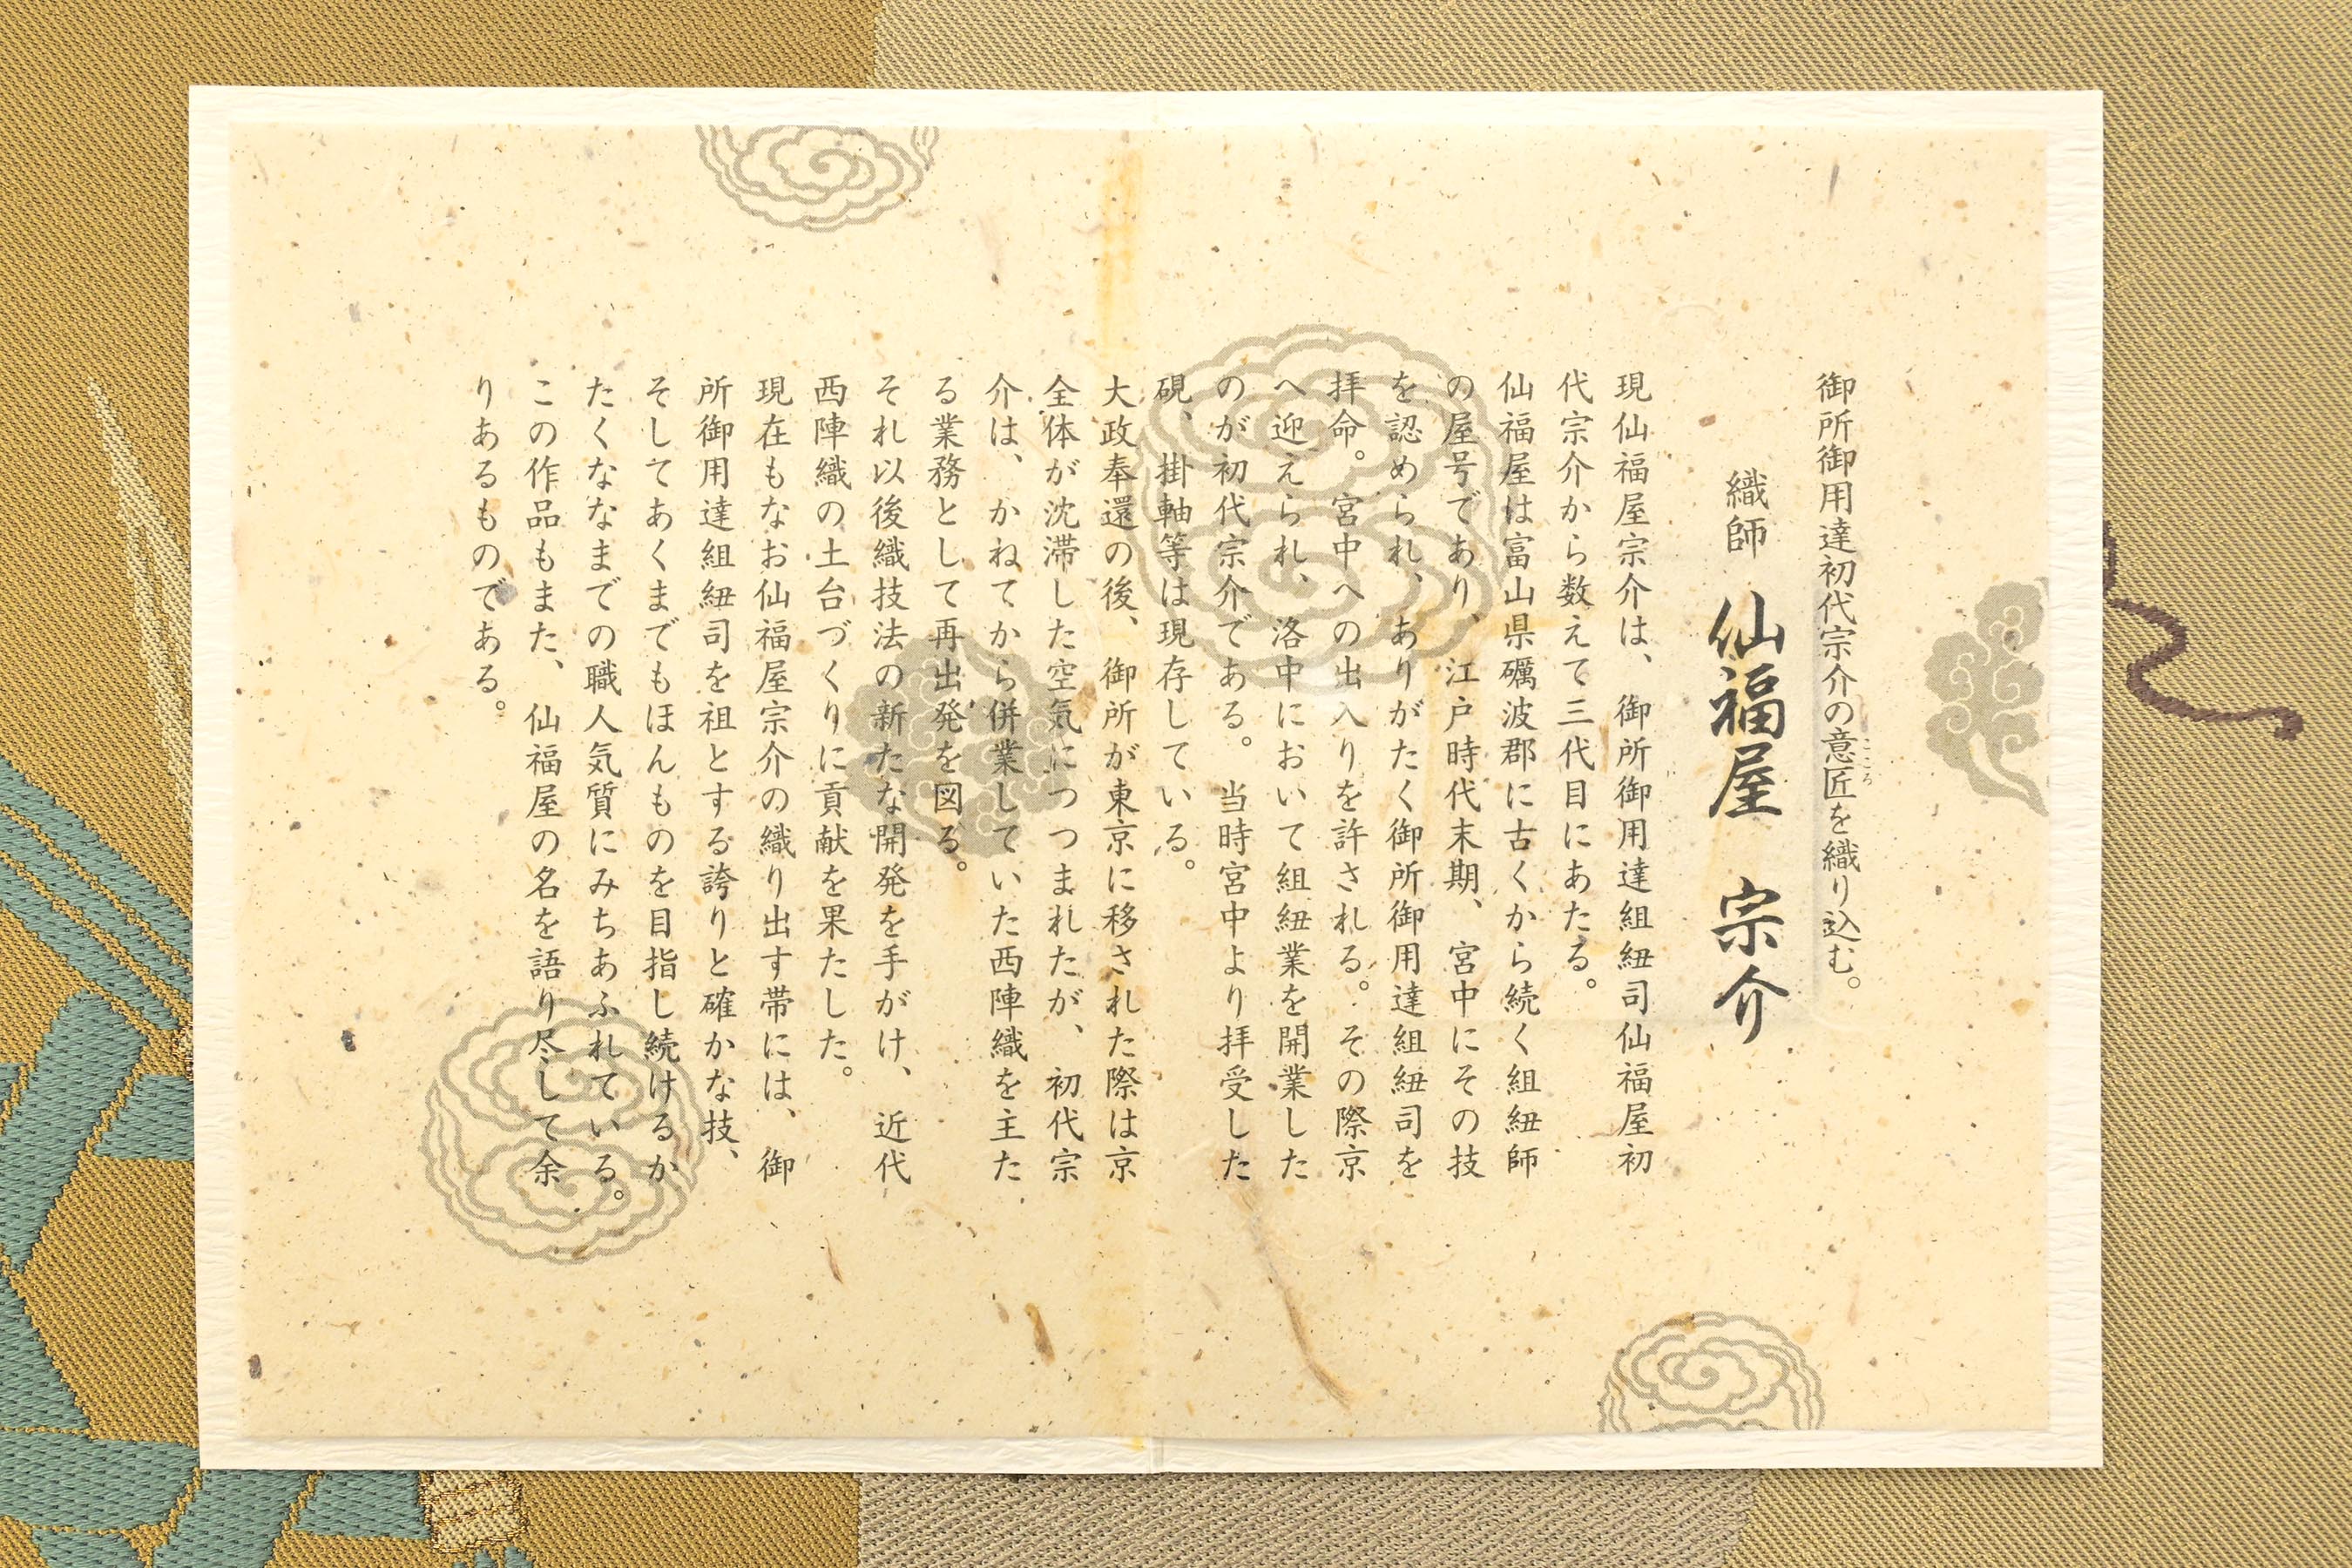 御所御用達初代宗介の意匠を織り込む。
こころ
織師 仙福屋 宗介
現仙福屋宗介は、御所御用達組紐司仙福屋初
代宗介から数えて三代目にあたる。
仙福屋は富山県礪波郡に古くから続く組紐師
の屋号であり、江戸時代末期、宮中にその技
を認められ、ありがたく御所御用達組紐司を
拝命。宮中への出入りを許される。その際京
へ迎えられ、洛中において組紐業を開業した
のが初代宗介である。当時宮中より拝受した
硯、掛軸等は現存している。
大政奉還の後、御所が東京に移された際は京
全体が沈滞した空気につつまれたが、初代宗
介は、かねてから併業していた西陣織を主た
る業務として再出発を図る。
それ以後織技法の新たな開発を手がけ、近代
西陣織の土台づくりに貢献を果たした。
現在もなお仙福屋宗介の織り出す帯には、御
所御用達組紐司を祖とする誇りと確かな技、
そしてあくまでもほんものを目指し続けるか
たくななまでの職人気質にみちあふれている。
この作品もまた、仙福屋の名を語り尽して余
りあるものである。